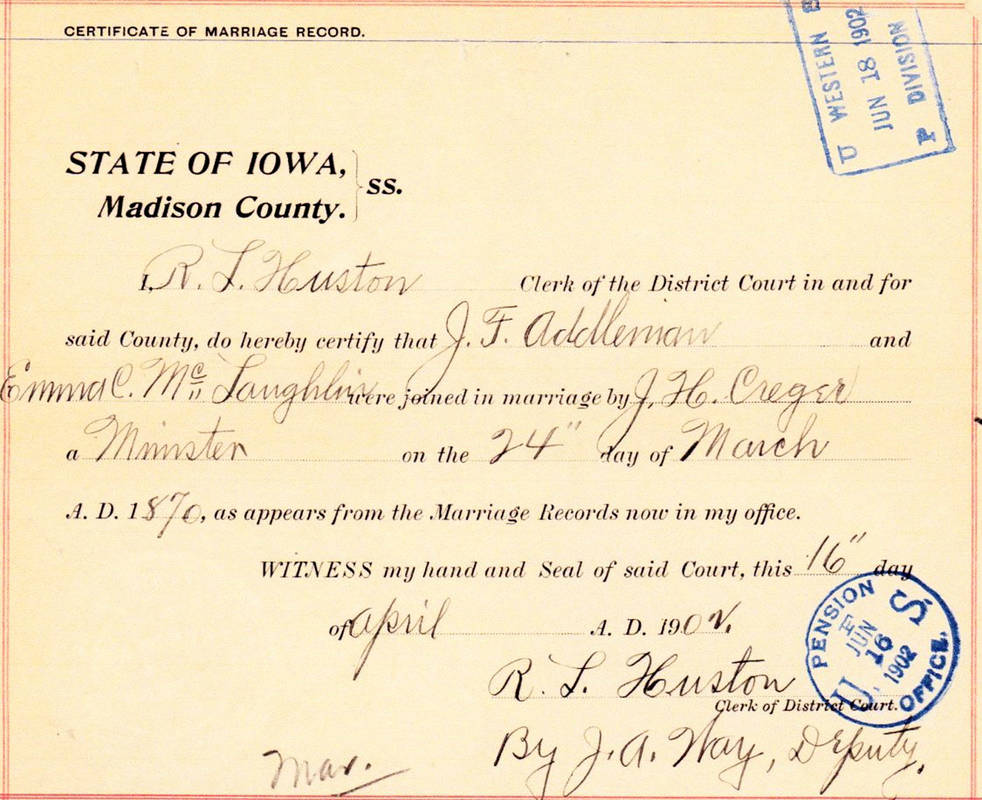 CERTIFICATE OF MARRIAGE RECORD.
U WESTERN
JUN 18 1902
P DIVISION
STATE OF IOWA,
Madison County. ss.
I, R. L. Huston Clerk of the District Court in and for
said County, do hereby certify that J. F. Addleman and
Emma C. Mc Laughlin were joined in marriage by J. H. Creger
a Minister on the 24" day of March
A. D. 1870, as appears from the Marriage Records now in my office.
WITNESS my hand and Seal of said Court, this 16" day
of April A. D. 1902.
U. S. PENSION OFFICE.
JUN
16
1902
R. L. Huston
Clerk of District Court.
By J. A. Way, Deputy.
Mar.